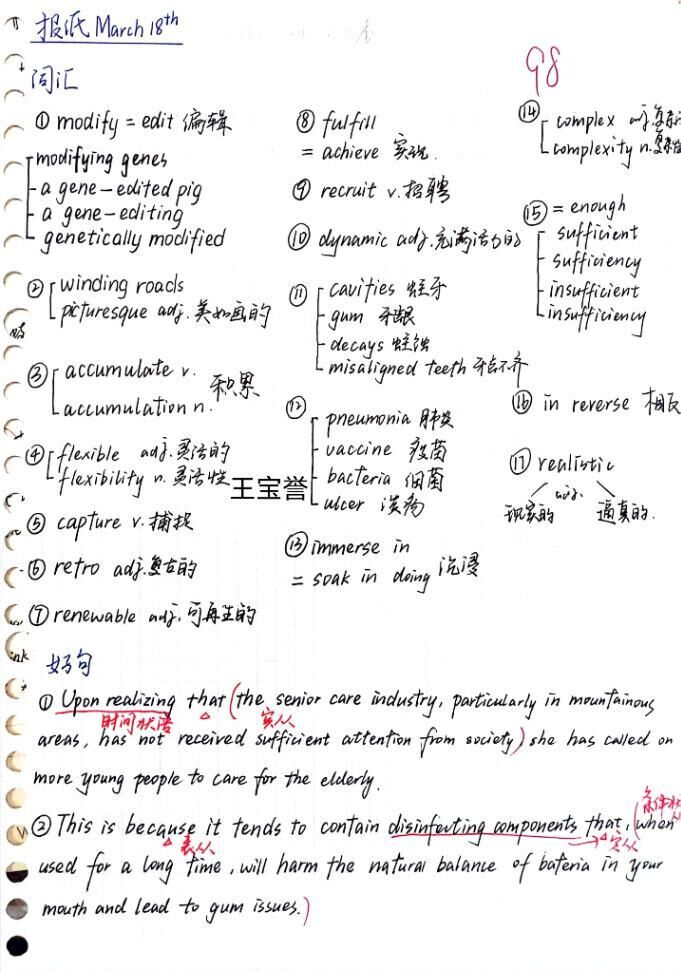 报纸 March 18th
98
词汇
① modify = edit 编辑
modifying genes
a gene-edited pig
a gene-editing
genetically modified
② winding roads
picturesque adj. 美如画的
③ accumulate v.
accumulation n. 积累
④ flexible adj. 灵活的
flexibility n. 灵活性
⑤ capture v. 捕捉
⑥ retro adj. 复古的
⑦ renewable adj. 可再生的
⑧ fulfill
= achieve 实现
⑨ recruit v. 招聘
⑩ dynamic adj. 充满活力的
⑪ cavities 蛀牙
gum 牙龈
decays 蛀蚀
misaligned teeth 牙齿不齐
⑫ pneumonia 肺炎
vaccine 疫苗
bacteria 细菌
ulcer 溃疡
王宝誉
⑬ immerse in
= soak in doing 沉浸
⑭ complex adj. 复杂
complexity n. 复杂性
⑮ = enough
sufficient
sufficiency
insufficient
insufficiency
⑯ in reverse 相反
⑰ realistic
adj.
现实的 逼真的.
好句
① Upon realizing that (the senior care industry, particularly in mountainous
时间状语 宾从
areas, has not received sufficient attention from society) she has called on
more young people to care for the elderly.
② This is because it tends to contain disinfecting components that, (when
表从 定从
used for a long time, will harm the natural balance of bateria in your
mouth and lead to gum issues.)